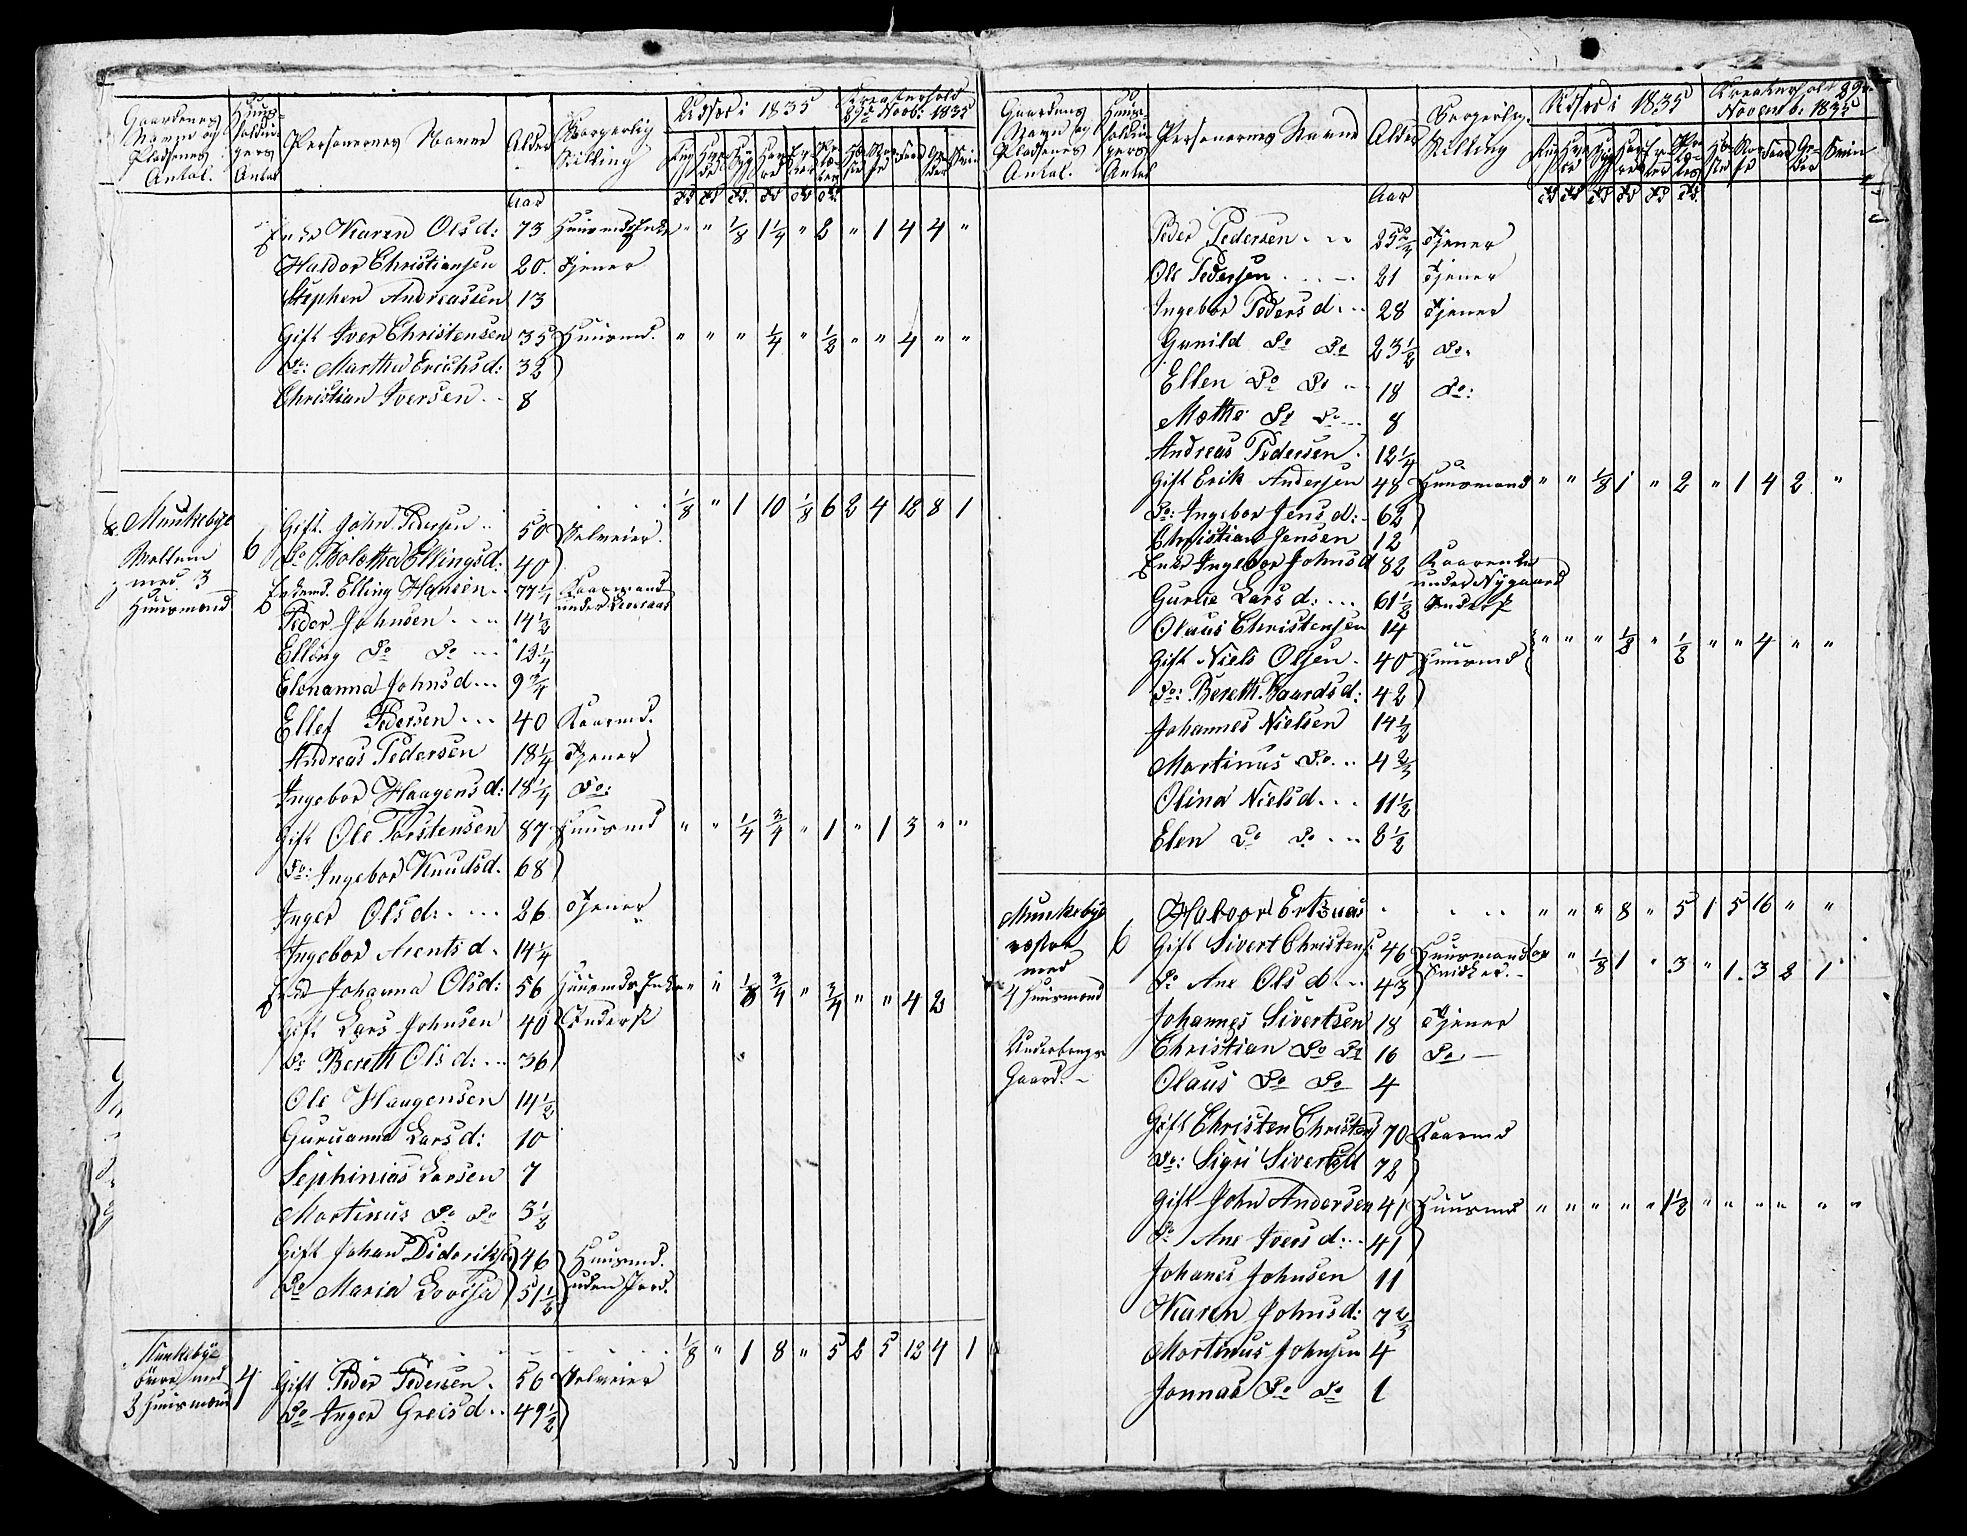 Gaardenes Navn og Pladsenes Antal.
Huusholdningers Antal
Personernes Navne
Alder
Borgerlig Stilling
Udsæd i 1835
Kreaturhold 29de Novb: 1835
Aar
Enke Karen Olsd: 73 Huusmds Enke " " 1/8 1 1/4 " 2 " 1 4 4 "
Haldor Christiansen 20 Tjener
Stephen Andreassen 13
Gift Iver Christensen 35 Huusmd. " " " 1/4 " 1/2 " " 4 " "
Do: Martha Erichsd: 32
Christian Iversen 8
1/8 " 1 10 1/8 6 2 4 12 8 1
Munkebye
Mellem
med 3
Huusmænd
6
Gift John Pedersen 50 Selveier.
Do Bolettha Ellingsd: 40
Enkemd. Elling Hansen 77 1/4 Kaarmand
under
Peder Johnsen 14 1/2
Elling Do Do 12 1/4
Elonanna Johnsd 9 3/4
Ellef Pedersen 40 Kaarmd.
Andreas Pedersen 18 1/4 Tjener
Ingebor Haagensd: 18 1/4 Do:
Gift Ole Torstensen 87 Huusmd " " 1/4 3/4 " 1 " 1 3 " "
Do: Ingebor Knudsd. 68
Inger Olsd: 26 Tjener
Ingebor Arentsd. 14 1/4
Enke Johanna Olsd: 56 Huusmds Enke " " 1/8 3/4 " 3/4 " " 4 2
Gift Lars Johnsen 40 Inderst
Do Bereth Olsd: 36
Ole Haagensen 14 1/2
Guruanna Larsd: 10
Sephinias Larsen 7
Martinus Do Do 3 1/2
Gift Johan Dideriks. 46 Huusmd.
Do Maria Lovisa 51 1/2 uden Jord.
Munkebye
øvre med
2 Huusmænd
4
1/8 " 1 8 " 5 2 5 12 4 1
Gift Peder Pedersen 56 Selveier
Do Inger Greisd. 49 1/2
Gaardenes Navn og Pladsenes Antal.
Huusholdningers Antal
Personernes Navne
Alder
Borgerlig Stilling
Udsæd i 1835
Kreaturhold 29de Novemb: 1835
Aar
Peder Pedersen 25 3/4 Tjener
Ole Pedersen 21 Tjener
Ingebor Pedersd. 28 Tjener
Gunild Do Do 23 1/2 Do:
Ellen Do Do 18 Do:
Mathe Do Do 8
Andreas Pedersen 12 1/4
Gift Erik Andersen 48 Huusmand " " 1/8 1 " 2 " 1 4 2 "
Do: Ingebor Jensd: 62
Christian Jensen 12
Enke Ingebor Johnsd 82 Kaarenke
under Nygaard
Gurue Larsd: 61 1/2 Inderst
Olaus Christensen 14
Gift Niels Olsen 40 Huusmd " " " 1/8 " 1/2 " " 4 " "
Do: Bereth Baardsd: 42
Johannes Nielsen 14 1/2
Martinus Do 4 2/3
Olina Nielsd. 11 1/2
Elen Do Do 8 1/2
Munkebye
vestre
med
4 Huusmænd
Underbrugs
Gaard.
6
" " " 8 " 5 1 5 16 " "
Gift Sivert Christens. 46 Huusmand og " " 1/8 1 " 3 " 1 3 2 1
Snidker.
Do Ane Olsd. 43
Johannes Sivertsen 18 Tjener
Christian Do Do 16 Do
Olaus Do Do 4
Gift Christen Christens 70 Kaarmd
Do: Sigri Sivertsd 72
Gift John Andersen 41 Huusmd " " " " " 1 1/2 " " " " " "
Do Ane Iversd: 41
Johanes Johnsen 11
Karen Johnsd: 7 2/3
Martinus Johnsen 4
Jonnas Do Do 1